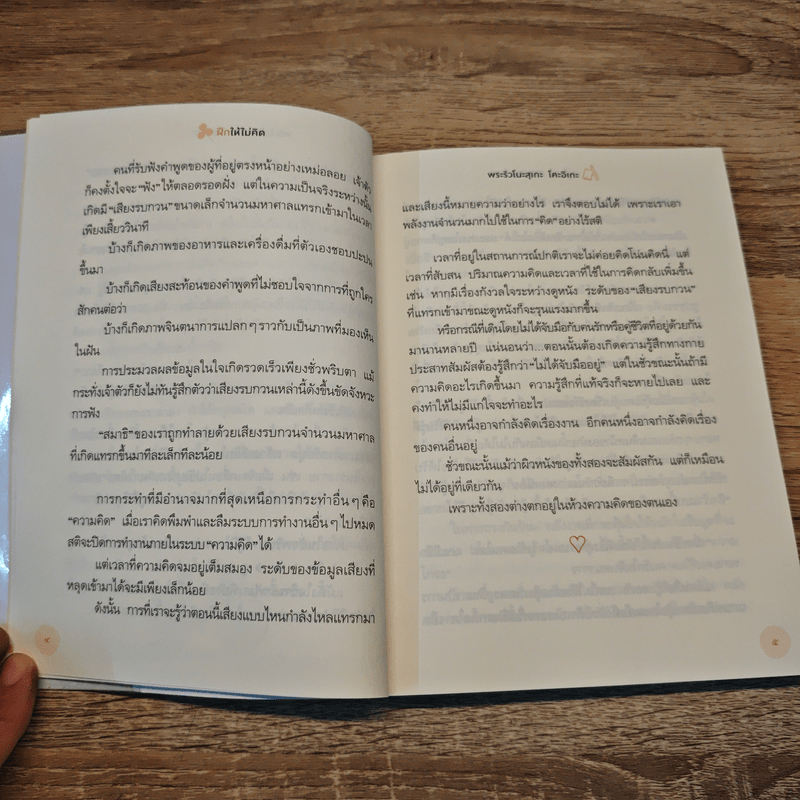 ฝึกให้ไม่คิด
คนที่รับฟังคำพูดของผู้ที่อยู่ตรงหน้าอย่างเหม่อลอย เจ้าตัว
ก็คงตั้งใจจะ “ฟัง” ให้ตลอดรอดฝั่ง แต่ในความเป็นจริงระหว่างนั้น
เกิดมี “เสียงรบกวน” ขนาดเล็กจำนวนมหาศาลแทรกเข้ามาในเวลา
เพียงเสี้ยววินาที
บ้างก็เกิดภาพของอาหารและเครื่องดื่มที่ตัวเองชอบปะปน
ขึ้นมา
บ้างก็เกิดเสียงสะท้อนของคำพูดที่ไม่ชอบใจจากการที่ถูกใคร
สักคนต่อว่า
บ้างก็เกิดภาพจินตนาการแปลก ๆ ราวกับเป็นภาพที่มองเห็น
ในฝัน
การประมวลผลข้อมูลในใจเกิดรวดเร็วเพียงชั่วพริบตา แม้
กระทั่งเจ้าตัวก็ยังไม่ทันรู้สึกตัวว่าเสียงรบกวนเหล่านี้ดังขึ้นขัดจังหวะ
การฟัง
“สมาธิ” ของเราถูกทำลายด้วยเสียงรบกวนจำนวนมหาศาล
ที่เกิดแทรกขึ้นมาทีละเล็กทีละน้อย
การกระทำที่มีอำนาจมากที่สุดเหนือการกระทำอื่น ๆ คือ
“ความคิด” เมื่อเราคิดพึมพำและลืมระบบการทำงานอื่น ๆ ไปหมด
สติจะปิดการทำงานภายในระบบ “ความคิด” ได้
แต่เวลาที่ความคิดจมอยู่เต็มสมอง ระดับของข้อมูลเสียงที่
หลุดเข้ามาได้จะมีเพียงเล็กน้อย
ดังนั้น การที่เราจะรู้ว่าตอนนี้เสียงแบบไหนกำลังไหลแทรกมา
พระริวโนะสุเกะ โคะอิเกะ
และเสียงนี้หมายความว่าอย่างไร เราจึงตอบไม่ได้ เพราะเราเอา
พลังงานจำนวนมากไปใช้ในการ “คิด” อย่างไร้สติ
เวลาที่อยู่ในสถานการณ์ปกติเราจะไม่ค่อยคิดโน่นคิดนี่ แต่
เวลาที่สับสน ปริมาณความคิดและเวลาที่ใช้ในการคิดกลับเพิ่มขึ้น
เช่น หากมีเรื่องกังวลใจระหว่างดูหนัง ระดับของ “เสียงรบกวน”
ที่แทรกเข้ามาขณะดูหนังก็จะรุนแรงมากขึ้น
หรือกรณีที่เดินโดยไม่ได้จับมือกับคนรักหรือคู่ชีวิตที่อยู่ด้วยกัน
มานานหลายปี แน่นอนว่า...ตอนนั้นต้องเกิดความรู้สึกทางกาย
ประสาทสัมผัสต้องรู้สึกว่า “ไม่ได้จับมืออยู่” แต่ในชั่วขณะนั้นถ้ามี
ความคิดอะไรเกิดขึ้นมา ความรู้สึกที่แท้จริงก็จะหายไปเลย และ
คงทำให้ไม่มีแก่ใจจะทำอะไร
คนหนึ่งอาจกำลังคิดเรื่องงาน อีกคนหนึ่งอาจกำลังคิดเรื่อง
ของคนอื่นอยู่
ชั่วขณะนั้นแม้ว่าผิวหนังของทั้งสองจะสัมผัสกัน แต่ก็เหมือน
ไม่ได้อยู่ที่เดียวกัน
เพราะทั้งสองต่างตกอยู่ในห้วงความคิดของตนเอง